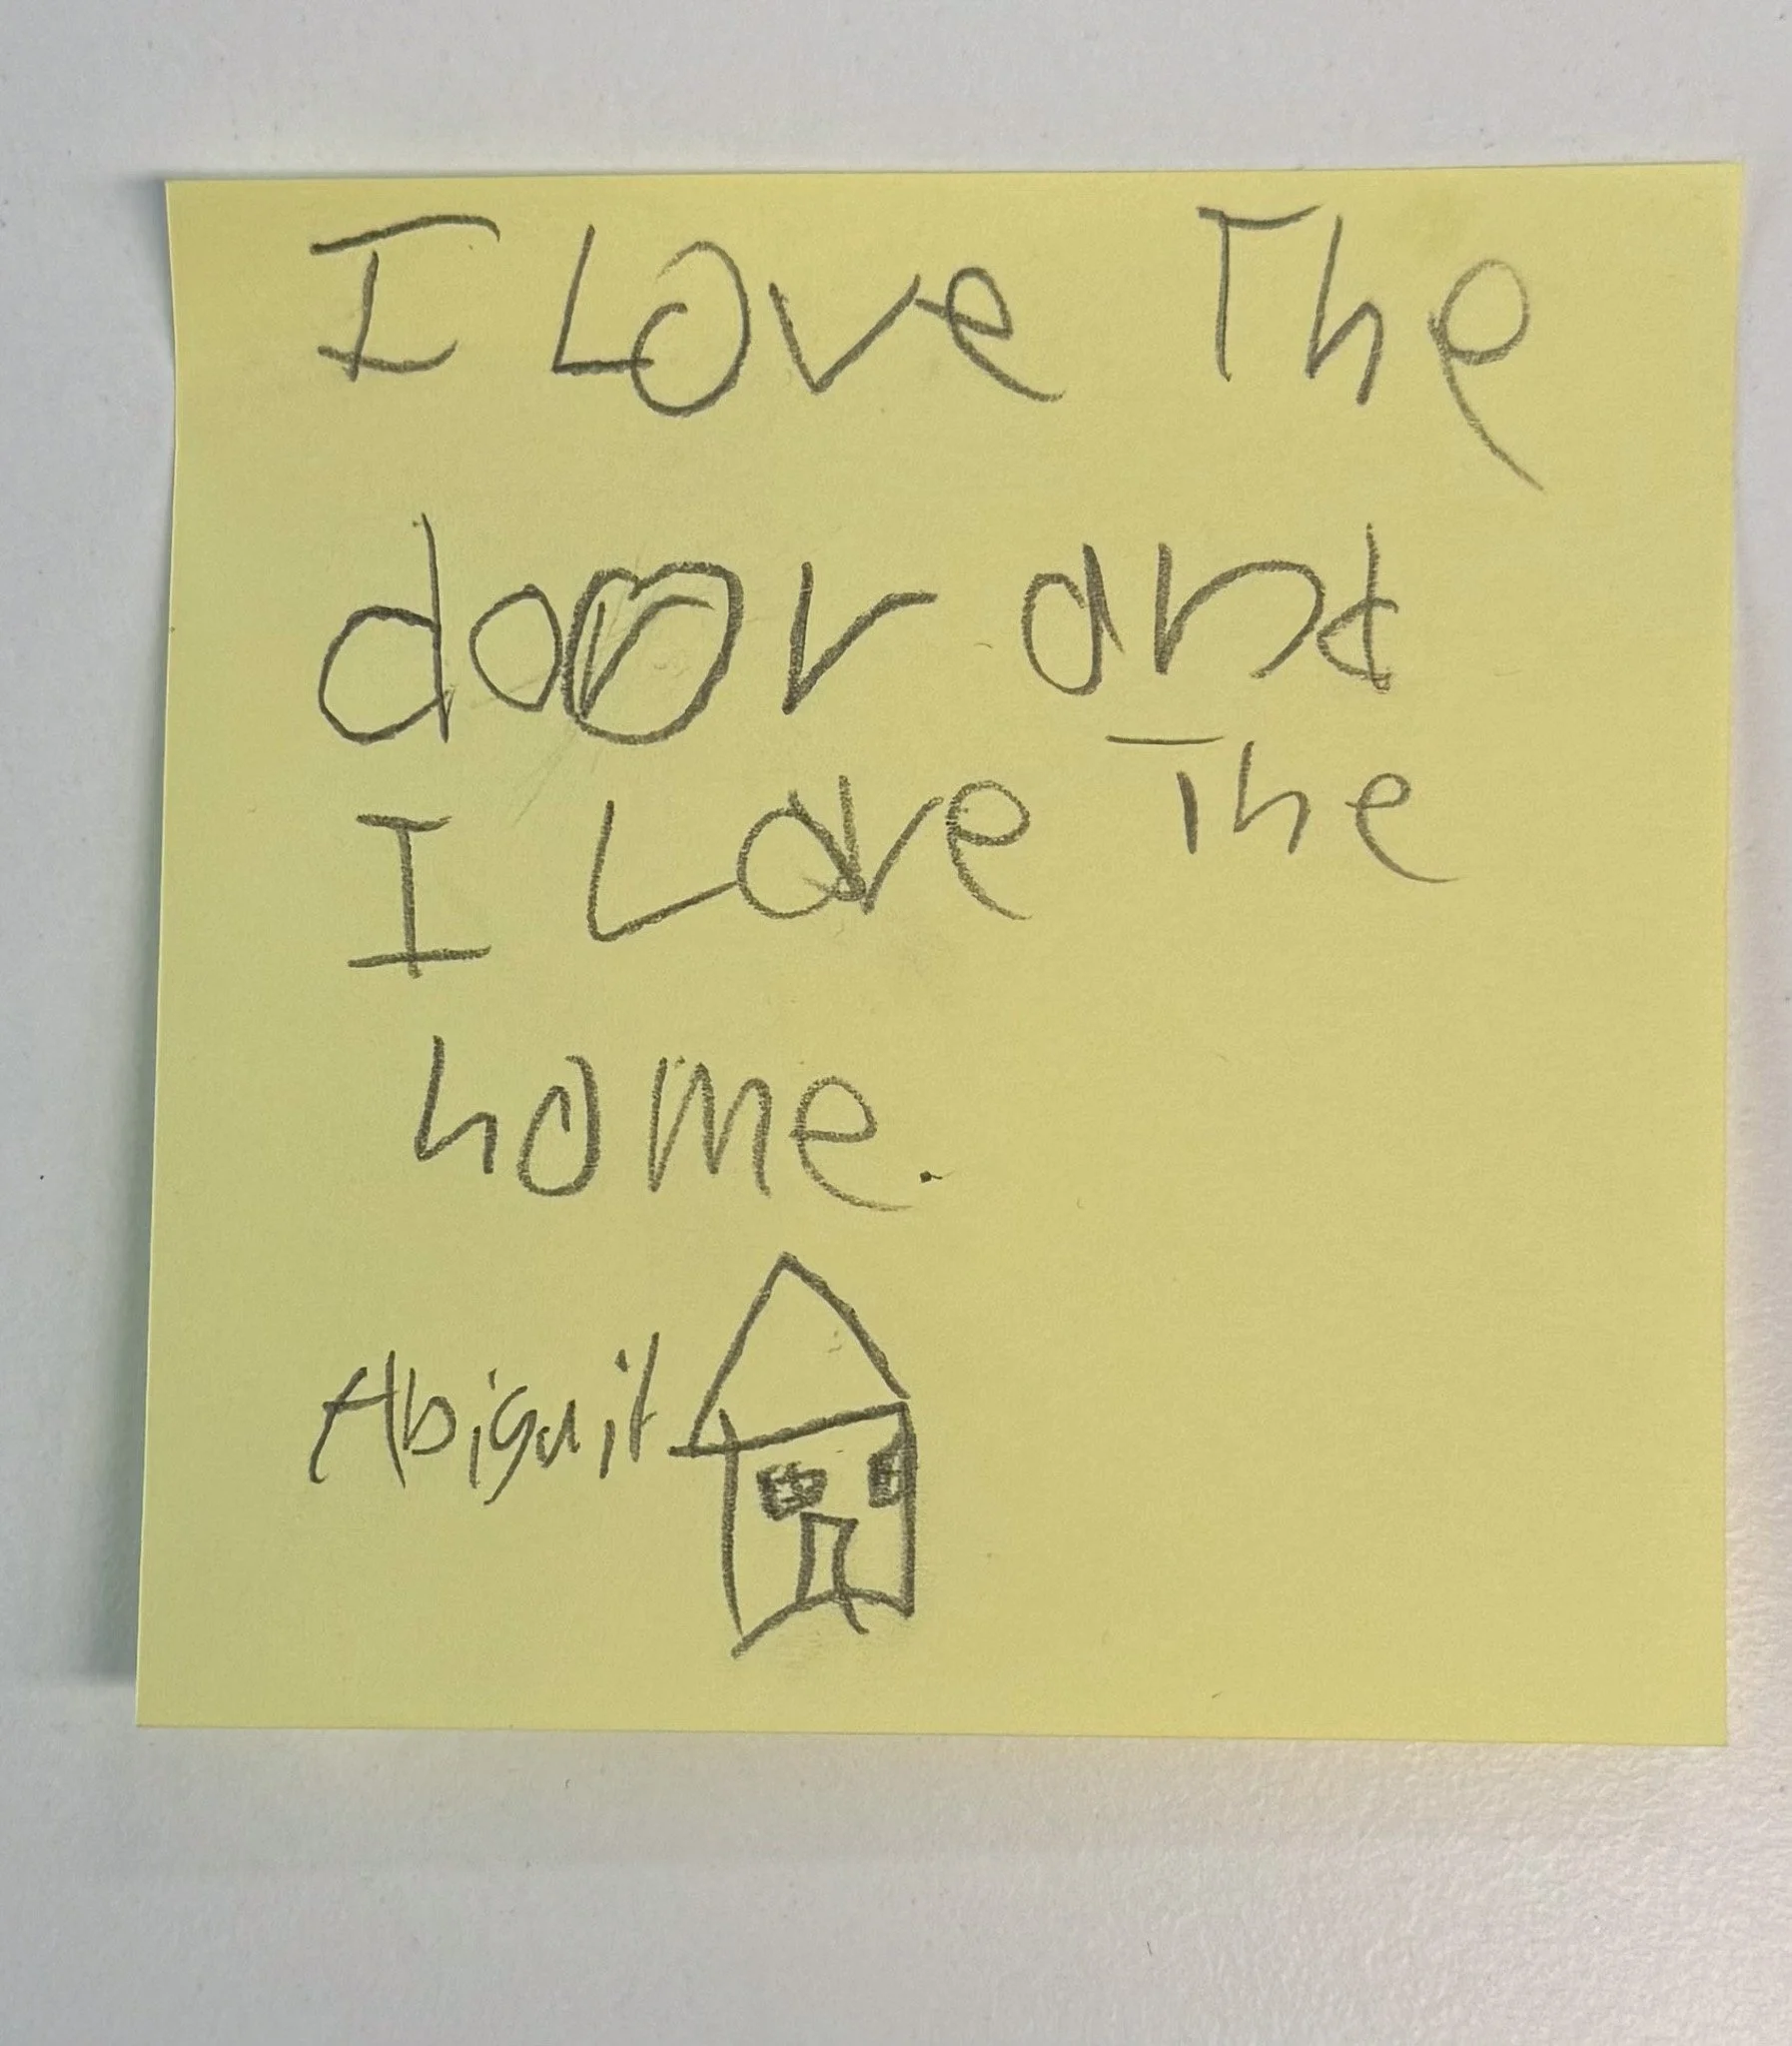 I Love The
door and
I Love The
home.
Abigail